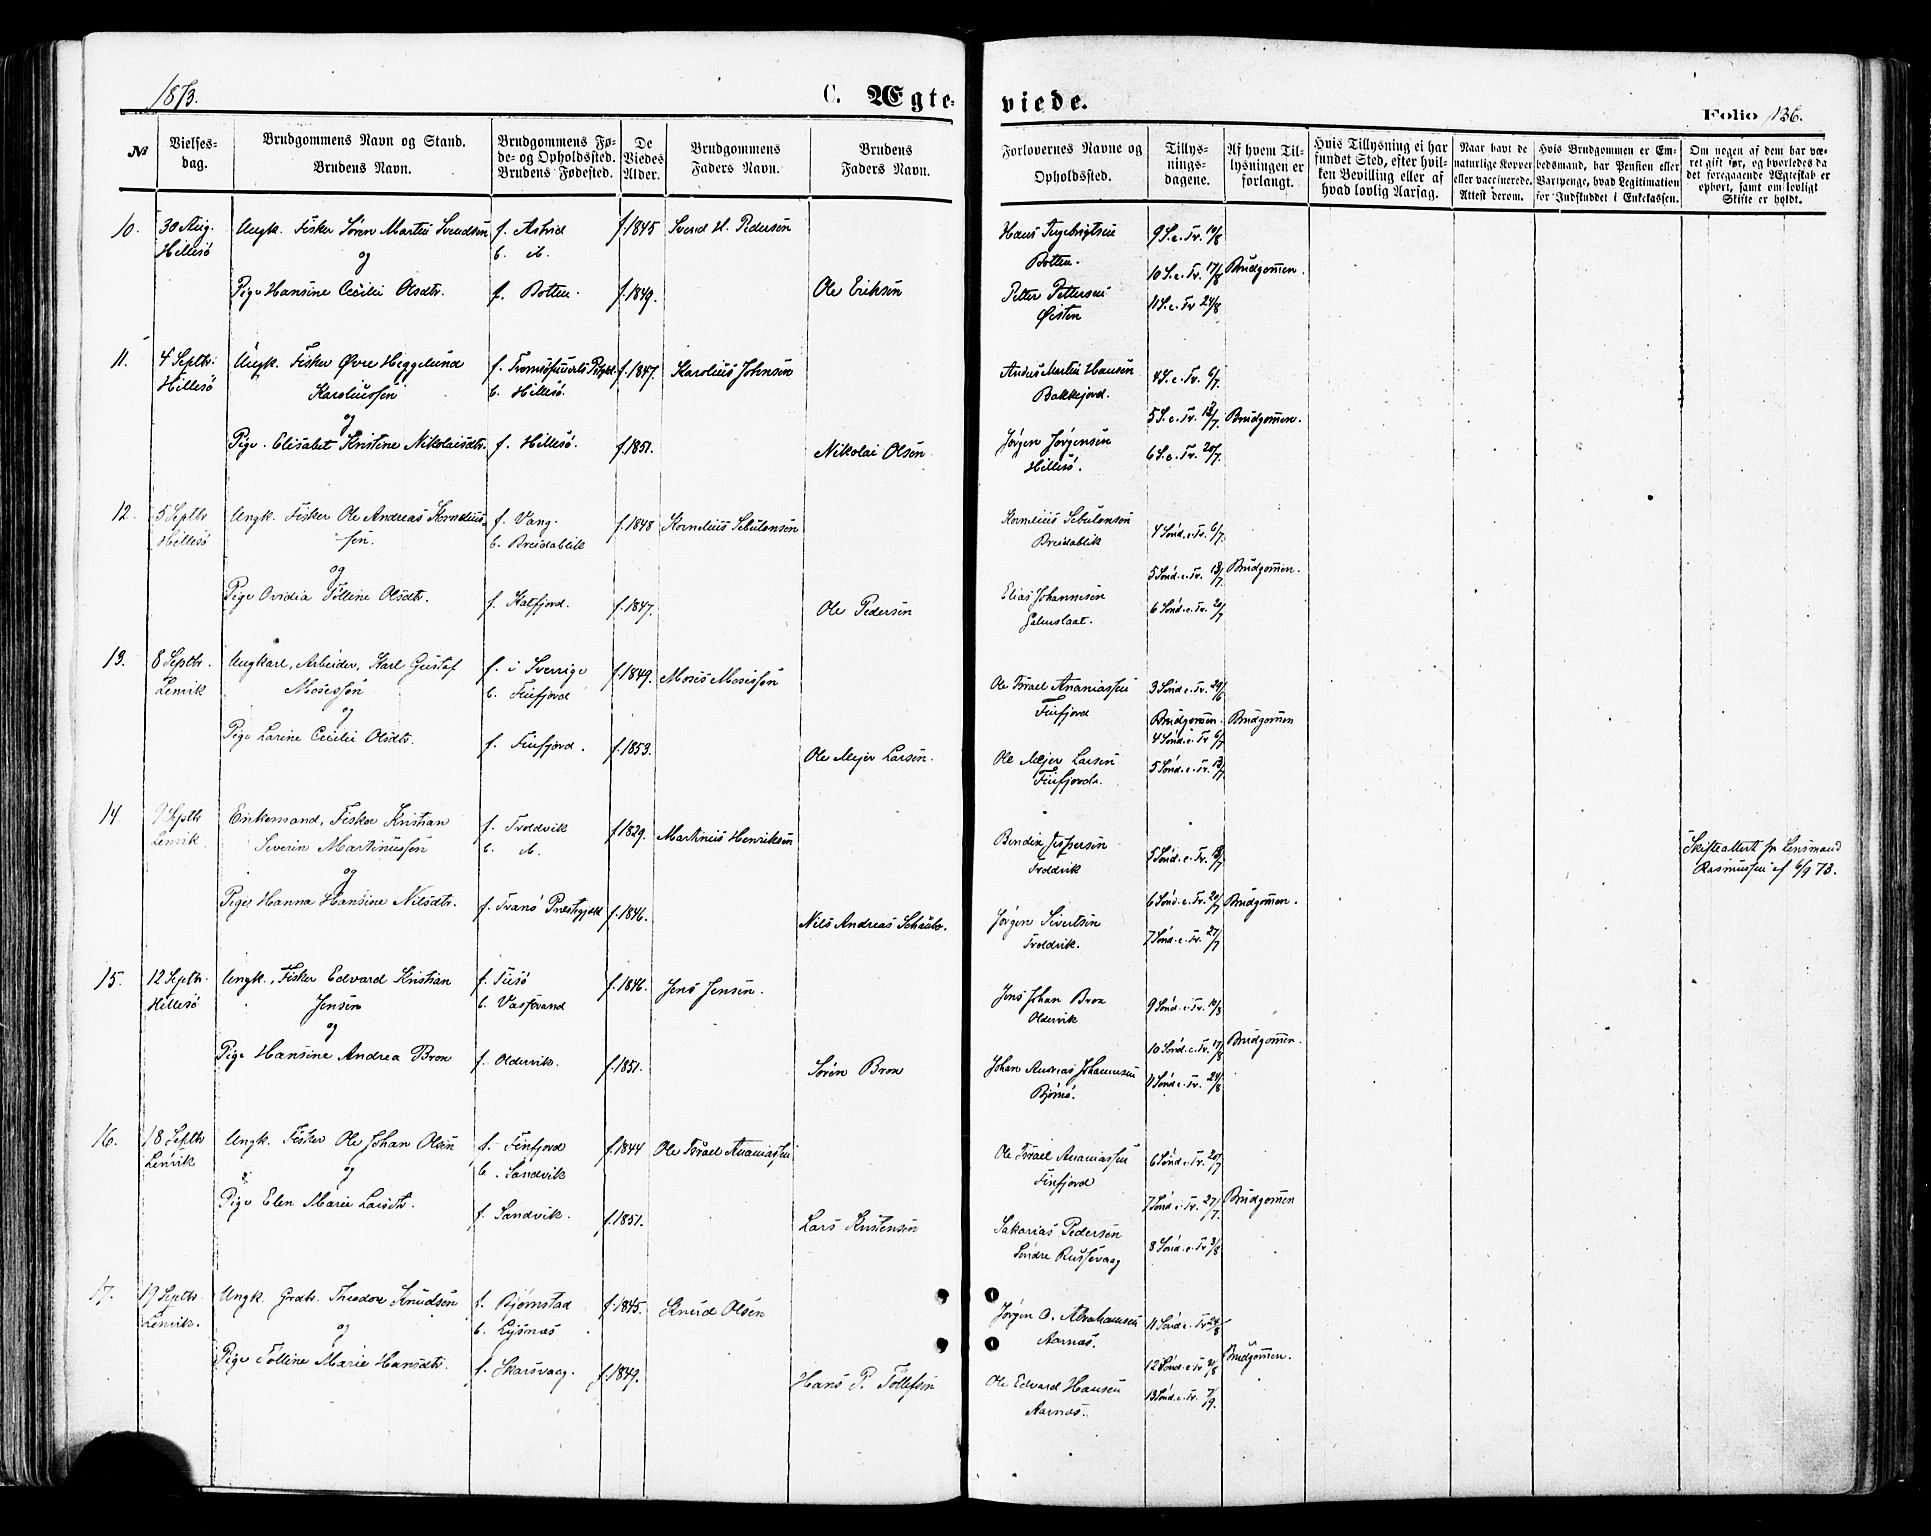 1873.
C. Ægte-
viede.
Folio 136.
№
Vielses-
dag.
Brudgommens Navn og Stand.
Brudens Navn.
Brudgommens Fø-
de- og Opholdssted.
Brudens Fødested.
De
Viedes
Alder.
Brudgommens
Faders Navn.
Brudens
Faders Navn.
Forlovernes Navne og
Opholdssted.
Tillys-
nings-
dagene.
Af hvem Til-
lysningen er
forlangt.
Hvis Tillysning ei har
fundet Sted, efter hvil-
ken Bevilling eller af
hvad lovlig Aarsag.
Naar havt de
naturlige Kopper
eller vaccinerede.
Attest derom.
Hvis Brudgommen er Em-
bedsmand, har Pension eller
Vartpenge, hvad Legitimation
for Indskuddet i Enkekassen.
Om nogen af dem har væ-
ret gift før, og hvorledes da
det foregaaende Ægteskab er
ophørt, samt om lovligt
Skifte er holdt.
10. 30 Aug. Ungk. Fisker Sören Martin Svendsen f. Astrid f. 1845 Svend H. Pedersen Hans Ingebrigtsen 9 S. e. Tr. 10/8
Hillesö og b. ib. Botten.
10 S. e. Tr. 17/8 Brudgommen.
Pige Hansine Cecilie Olsdtr. f. Botten. f. 1849. Ole Eriksen Petter Pettersen 11 S. e. Tr. 24/8
Øisten
11. 4 Septbr. Ungk. Fisker Øvre Heggelund f. Tromsösundets Pstgjd. f. 1847. Karolius Johnsen Anders Martin Hansen 4 S. e. Tr. 6/7
Hillesö Karoliussen b. Hillesö. Bakkejord.
og 5 S. e. Tr. 13/7 Brudgommen.
Pige. Elisabet Kristine Nikolaisdtr. f. Hillesö. f. 1851. Nikolai Olsen Jörgen Jörgensen 6 S. e. Tr. 20/7
Hillesö.
12. 5 Septbr Ungk. Fisker Ole Andreas Kornelius- f. Vang. f. 1848 Kornelius Sebulonsen Kornelius Sebulonsen 4 Sönd. e. Tr. 6/7
Hillesö sen. b. Breidablik Breidablik
og 5 Sönd. e. Tr. 13/7 Brudgommen.
Pige Ovidia Tolline Olsdtr. f. Katfjord. f. 1847. Ole Pedersen Elias Johannesen 6 Sönd. e. Tr. 20/7
13. 8 Septbr. Ungkarl, Arbeider, Karl Gustaf f. i Sverrige f. 1849. Moses Mosessön Ole Israel Ananiassen 3 Sönd. e. Tr. 29/6
Lenvik Mosessön b. Finfjord Finfjord
og Brudgommen. Brudgommen
Pige Larine Cecilie Olsdtr. f. Finfjord. f. 1853. 4 Sönd. e. Tr 6/7
Ole Mejer Larsen. Ole Mejer Larsen 5 Sönd. e. Tr. 13/7
Finfjord.
14 9 Septbr Enkemand, Fisker Kristian f. Troldvik f. 1829. Martinus Henriksen Bendix Jespersen 5 Sönd. e. Tr. 13/7 Skifteattest fr Lensmand
Lenvik. Severin Martinussen b. ib. Troldvik Rasmussen af 6/9 73.
og 6 Sönd. e. Tr. 20/7 Brudgommen.
Pige Hanna Hansine Nilsdtr. f. Tranö Præstegjæld f. 1846. Nils Andreas Jörgen Sivertsen 7 Sönd. e. Tr. 27/7
Troldvik.
15. 12 Septbr. Ungk., Fisker Edvard Kristian f. Tusö f. 1846. Jens Jensen. Jens Johan Brox 9 Sönd. e. Tr. 10/8
Hillesö Jensen b. Vasstrand Oldervik
og 10 Sönd. e. Tr. 17/8 Brudgommen.
Pige Hansine Andrea Brox f. Oldervik. f. 1851. Sören Brox Johan Andreas Johannesen 11 Sönd. e. Tr. 24/8
Bjørnö.
16. 18 Septbr Ungk. Fisker Ole Johan Olsen f. Finfjord f. 1844 Ole Israel Ananiassen Ole Israel Ananiassen 6 Sönd. e. Tr. 20/7
Lenvik og b. Sandvik Finfjord
7 Sönd. e. Tr. 27/7. Brudgommen
Pige Elen Marie Larsdtr. f. Sandvik. f. 1851. Lars Kristensen Sakarias Pedersen 8 Sönd. e. Tr 3/8
Söndre Russevaag
17. 19 Septbr. Ungk. Grdbr. Theodor Knudsen f. Bjørnstad f. 1845. Knud Olsen Jörgen O. Abrahamsen 11 Sönd. e. Tr 24/8
Lenvik. og b. Lysnæs Aarnæs.
12 Sönd. e. Tr 31/8 Brudgommen.
Pige Tolline Marie Hansdtr. f. Skarsvaag. f. 1849. Hans P. Tollefsen Ole Edvard Hansen 13 Sönd. e. Tr. 7/9.
Aarnæs.